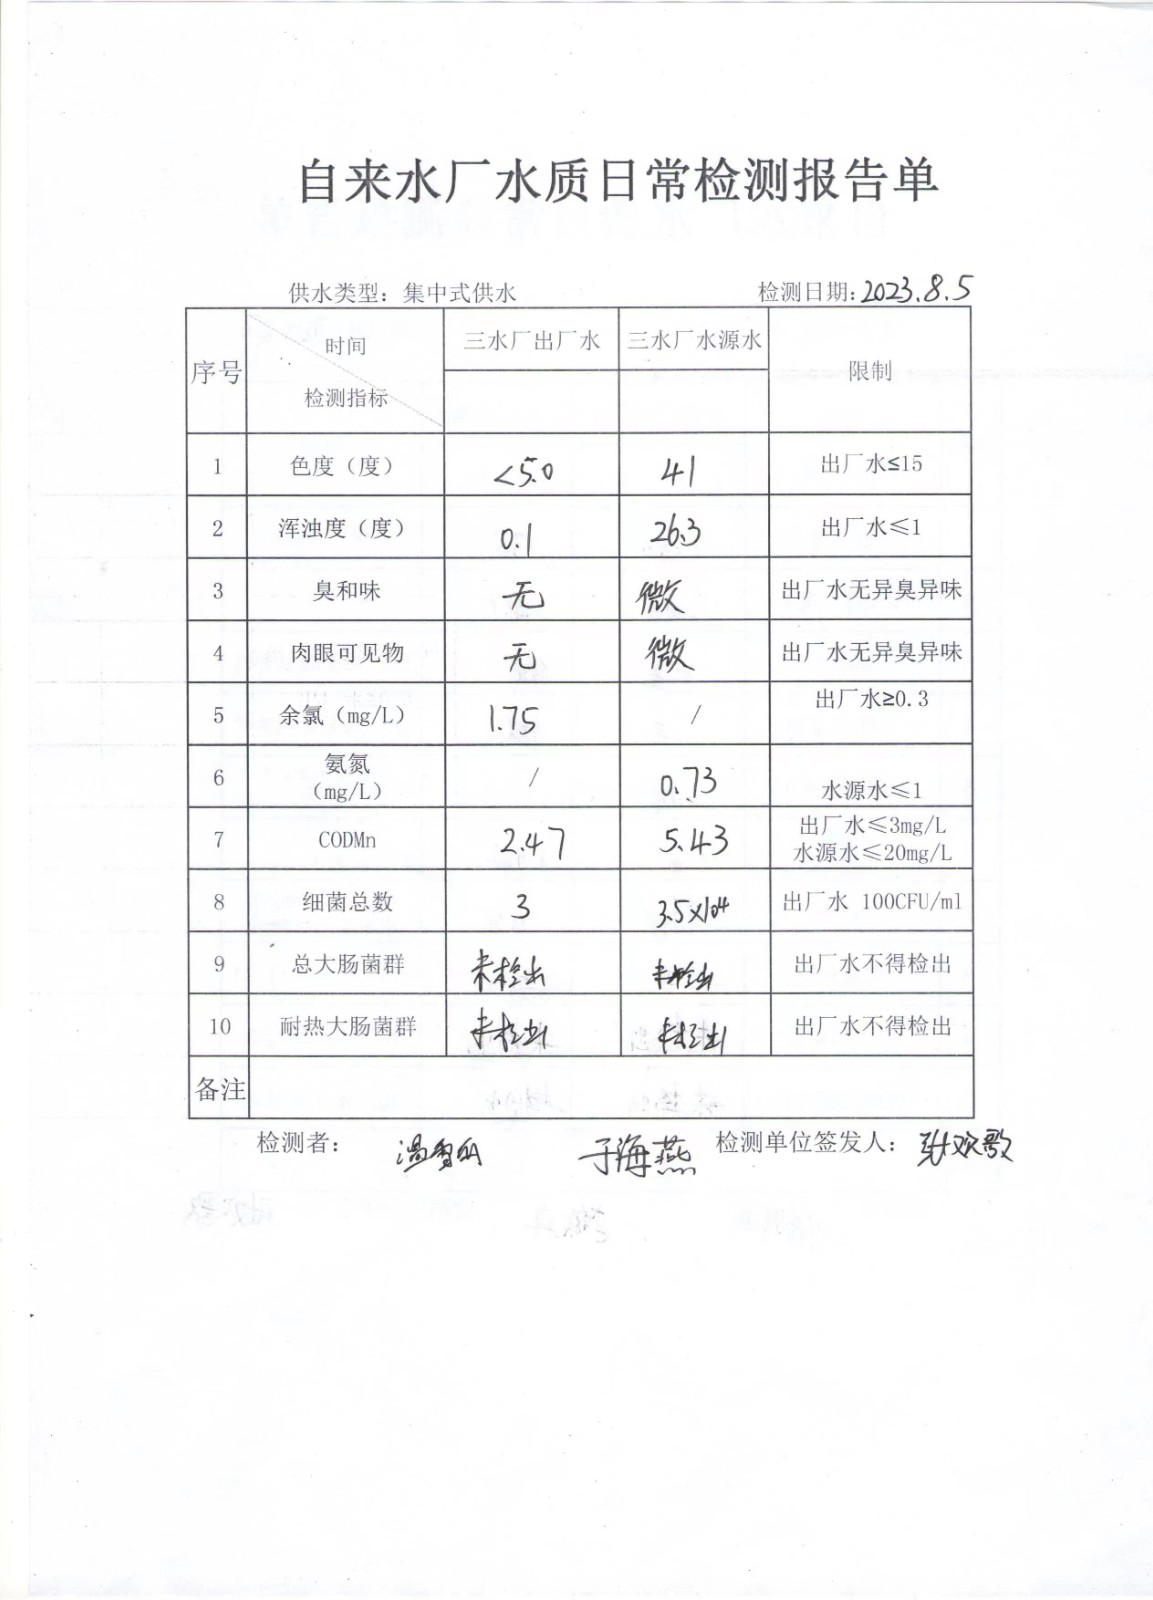 自来水厂水质日常检测报告单
供水类型：集中式供水 检测日期：2023.8.5
序号 时间 检测指标 三水厂出厂水 三水厂水源水 限制
1 色度（度） <5.0 41 出厂水≤15
2 浑浊度（度） 0.1 26.3 出厂水≤1
3 臭和味 无 微 出厂水无异臭异味
4 肉眼可见物 无 微 出厂水无异臭异味
5 余氯（mg/L） 1.75 / 出厂水≥0.3
6 氨氮（mg/L） / 0.73 水源水≤1
7 CODMn 2.47 5.43 出厂水≤3mg/L
水源水≤20mg/L
8 细菌总数 3 3.5×10⁴ 出厂水 100CFU/ml
9 总大肠菌群 未检出 未检出 出厂水不得检出
10 耐热大肠菌群 未检出 未检出 出厂水不得检出
备注
检测者： 于海燕 检测单位签发人：张欢歌